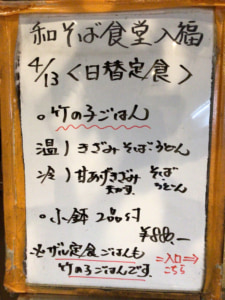 和そば食堂入福
4/13<日替定食>
○竹の子ごはん
温)きざみそばうどん
冷)甘あげきざみそば
うどん
○小鉢2品付
¥880,-
ザル定食ごはんも
竹の子ごはんです。
⇒入口⇒
こちら